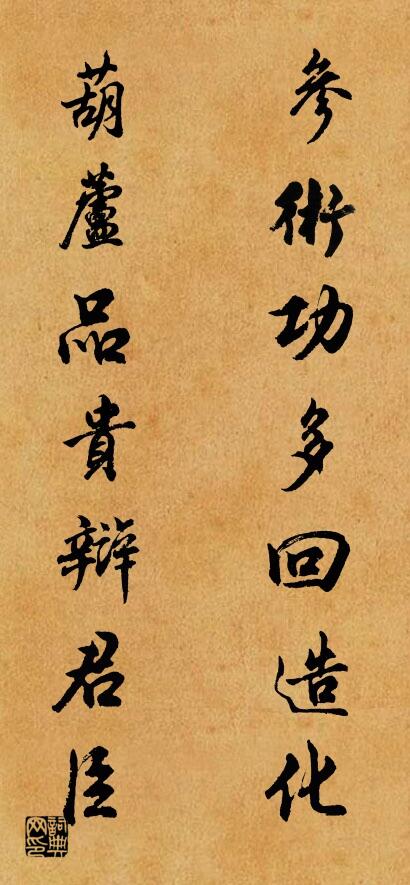 參術功多回造化
葫蘆品貴辯君臣
詞典网印